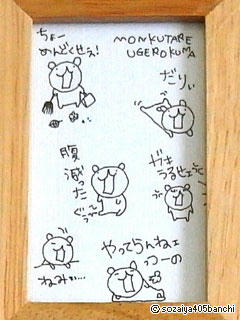 ちょー
めんどくせぇ!
MONKUTARE
UGEROKUMA
だりぃ
腹減った
ぐぅ〜
ガキ
うるせェ
ねみぃ…
やってらんねェ
っつーの
© sozaiya405banchi